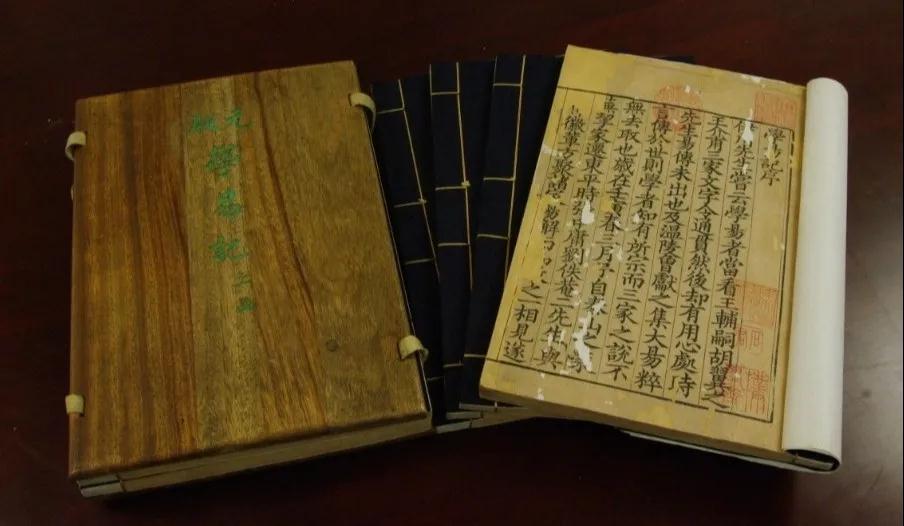 元
學易記
學易記序
先生嘗云學易者當看王輔嗣胡翼之
王介甫三家文字令通貫然後却有用心處時
先生易傳未出也及溫陵曾獻之集大易粹
言傳於世則學者知有所宗而三家之說不
無去取也歲在壬春三月予自泰山之
家遷東平時中庸劉佚菴二先生與
徽輩方聚易解之相見遂